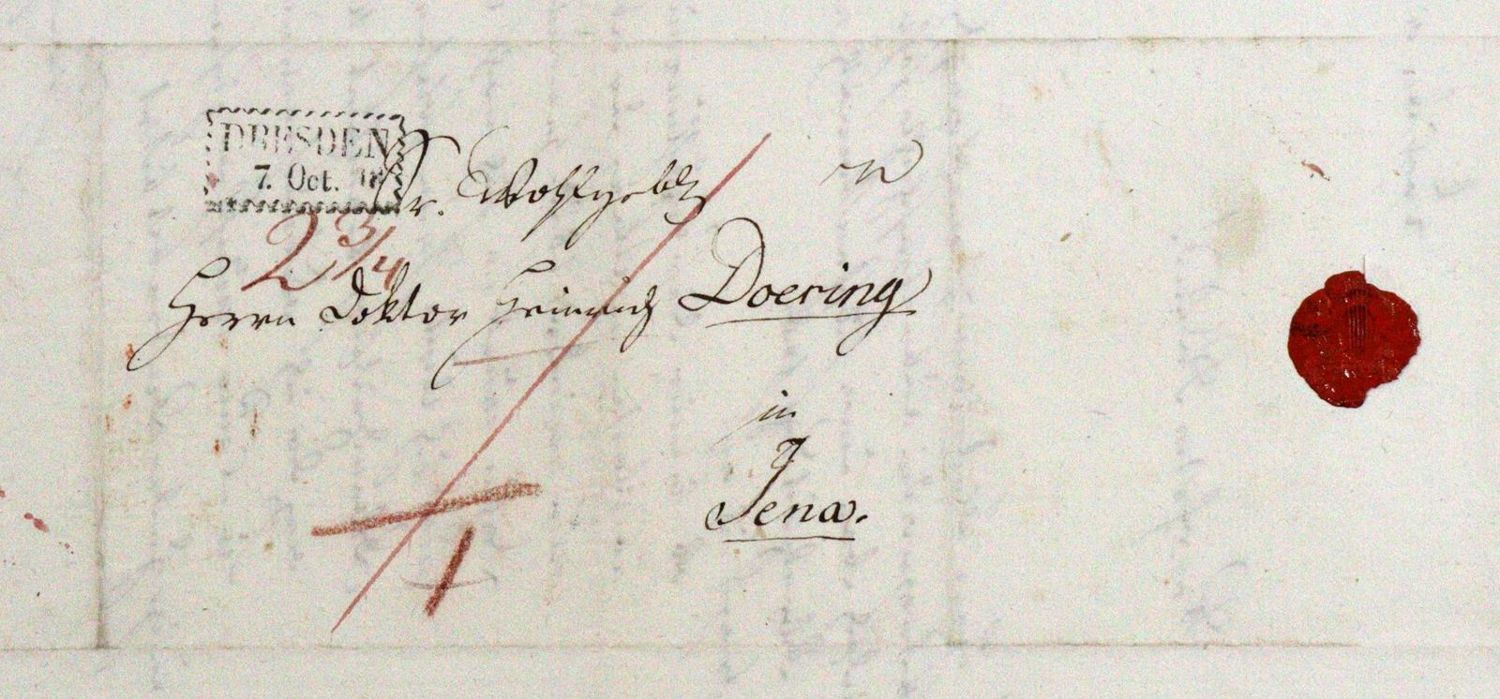 DRESDEN
7. Oct.
Sr. Wohlgeb
2 3/4
Herrn Doktor Heinrich Doering
in
Jena.